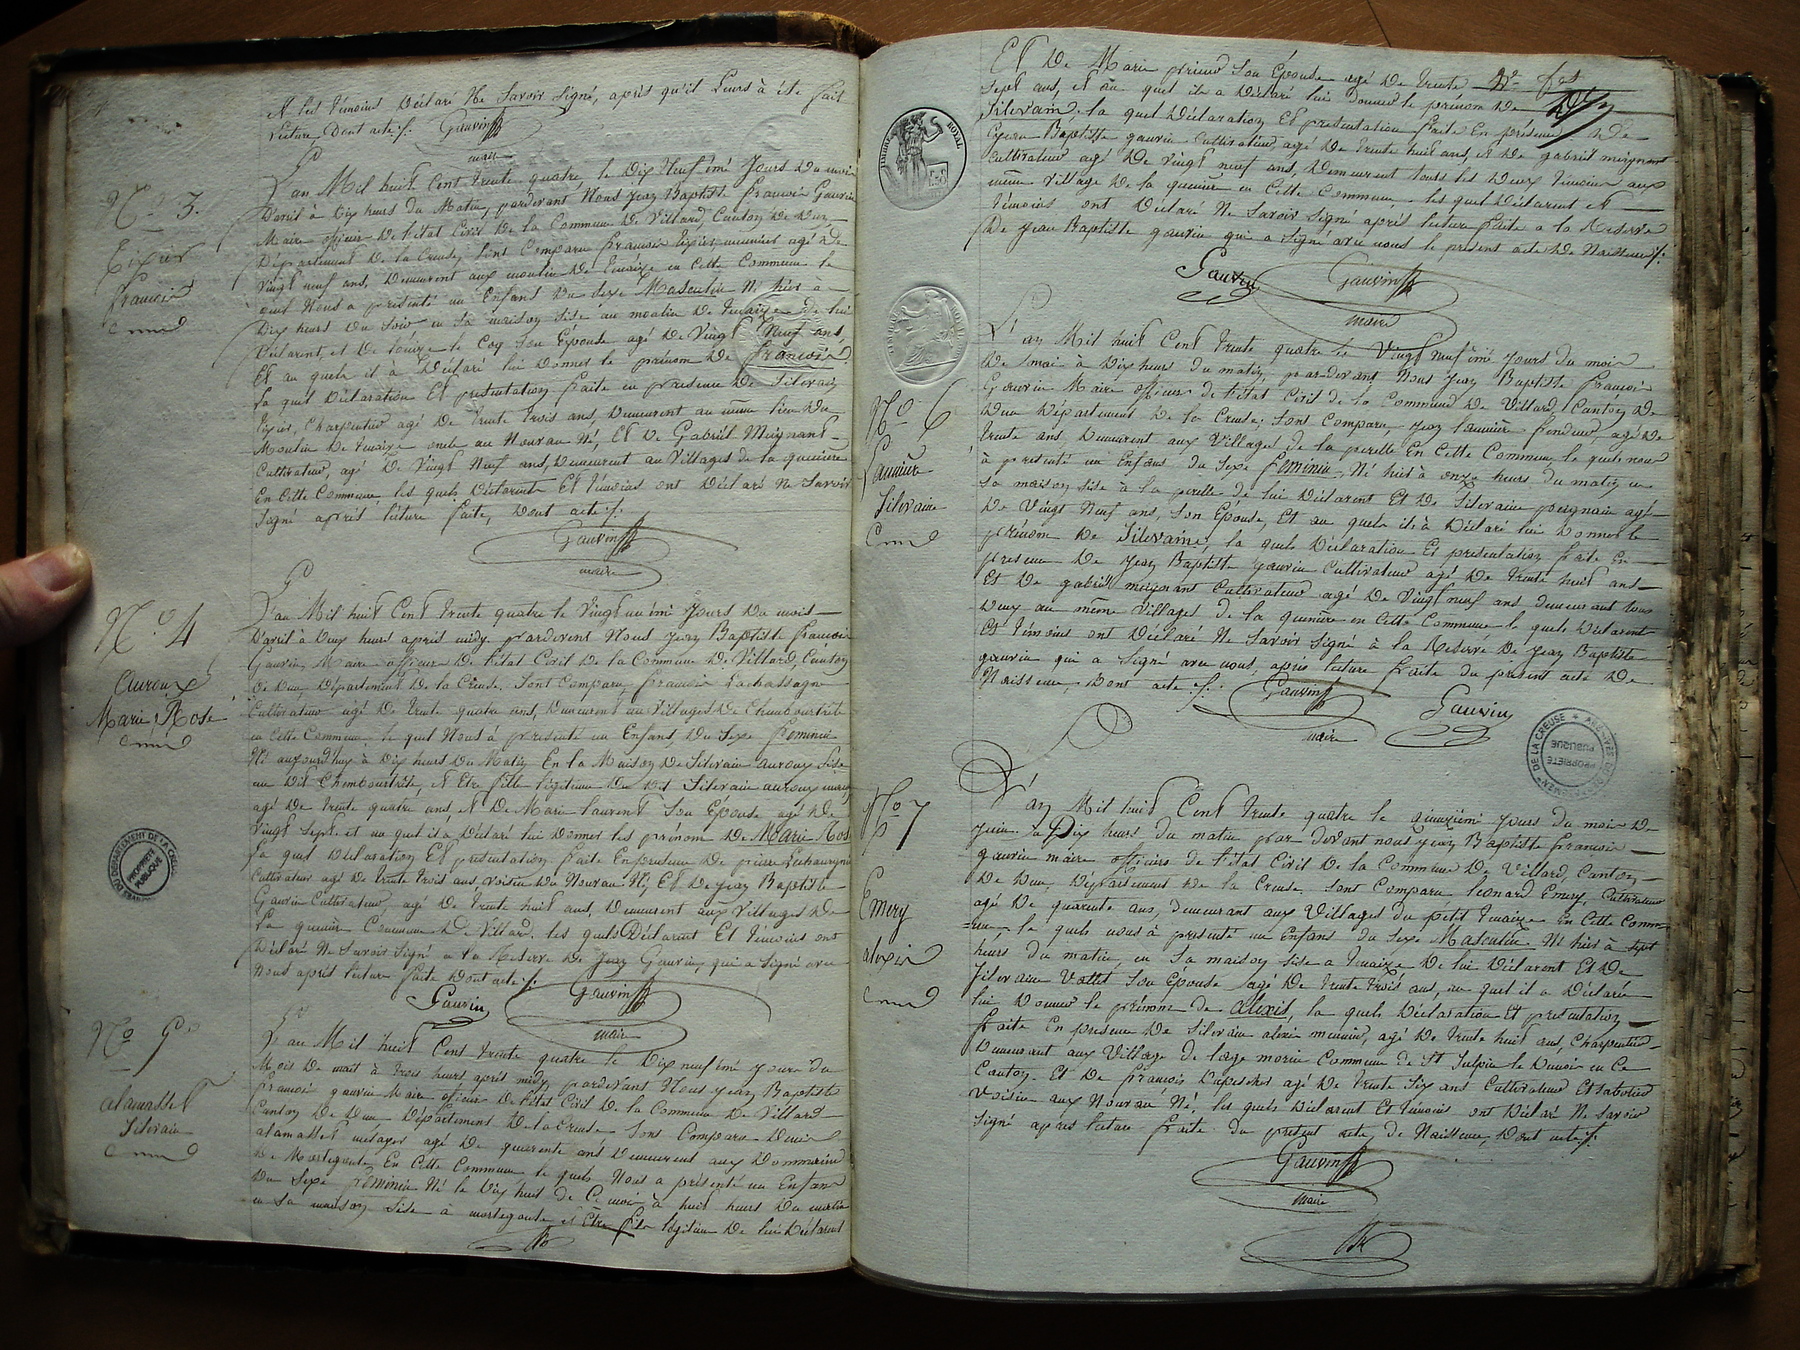 et les témoins Déclaré Ne Savoir Signé, après qu'il Leurs à été fait
Lecture Dont acte ./.
Gauvin
maire
N.o 3.
Tixier
françois
L'an Mil huit Cent trente quatre le Dix Neuf ème Jours Du mois
D'avril à Dix heurs du Matin, pardevant Nous Jean Baptiste françois Gauvin
Maire officier De l'état Civil De la Commune De Villard, Canton De Dun
Département De la Creuse, Sont Comparu françois Tixier, meunier agé De
Vingt neuf ans, Demeurent aux moulin De en Cette Commune le
quel Nous a présenté un Enfant Du Sexe Masculin Né hier à
Dix heurs Du Soir en Sa maison Sise au moulin De De lui
Déclarent, et De Louise le Coq Son Épouse agé De Vingt Neuf ans,
Et au quels il à Déclaré lui Donner le prénom De françois
La quel Déclaration Et présentation faite en présence De Silvain
Tixier, Charpentier agé De trente trois ans, Demeurent au même lieu Du
Moulin De oncle au Nouveau Né, Et De Gabriel Meignant
Cultivateur, agé De Vingt Neuf ans, Demeurent au Villages De la
En Cette Commune les quels Déclarent Et témoins ont Déclaré Ne Savoir
Signé après lecture faite, Dont acte ./.
Gauvin
maire
N.o 4
auroux
Marie Rose
L'an Mil huit Cent trente quatre le Vingt un ème Jours Du mois
D'avril à Deux heurs après midy, pardevent Nous Jean Baptiste françois
Gauvin, Maire officier De l'état Civil De la Commune De Villard, Canton
De Dun, Département De la Creuse, Sont Comparu, françois Lachassagne
Cultivateur agé De trente quatre ans, Demeurent au Villages De
en Cette Commune, le quel Nous à présenté un Enfans, Du Sexe féminin
Né aujourd'huy à Dix heurs Du Matin En la Maison De Silvain auroux Sise
au Dit et Être fille légitime Du Dit Silvain auroux
agé De trente quatre ans, et De Marie laurent Son Épouse agé De
Vingt Sept et au quel il à Déclaré lui Donner les prénom De Marie Rose
La quel Déclaration Et présentation faite En présence De pierre
Cultivateur agé De trente trois ans, voisin Du Nouveau Né, Et De Jean Baptiste
Gauvin Cultivateur, agé De trente huit ans, Demeurent aux Villages De
La Commune De Villard. les quels Déclarent Et témoins ont
Déclaré Ne Savoir Signé a la Réserve De Jean Gauvin, qui a Signé avec
Nous après lecture faite Dont acte ./.
Gauvin
Gauvin
maire
DU DEPARTEMENT DE LA CREUSE
PROPRIÉTÉ
PUBLIQUE
N.o 5
alamasset
Silvain
L'an Mil huit Cent trente quatre le Dix neuf ème Jours du
Mois De mai à trois heurs après midy, pardevans Nous Jean Baptiste
françois gauvin Maire officier De l'état Civil De la Commune De Villard
Canton De Dun, Département De la Creuse Sont Comparu Denis
alamasset métayer agé De quarente ans Demeurent aux Dommaine
De Mortegoute En Cette Commune le quels Nous a présenté un Enfant
Du Sexe féminin Né le Dix huit de Ce mois à huit heurs Du matin
en Sa maison Sise à mortegoute et Être légitime De lui Déclarent
Et De Marie prieur Son Épouse agé De trente
Sept ans, et au quel ile a Déclaré lui Donner le prénom De
Silvain, la quel Déclaration Et présentation faite En présence De
Jean Baptiste gauvin Cultivateur, agé De trente huit ans, et De gabriel meignant
Cultivateur agé De Vingt neuf ans, Demeurent tous les Deux témoins aux
même Village De la en Cette Commune, les quel Déclarent et
témoins ont Déclaré Ne Savoir Signé après lecture faite a la Réserve
De Jean Baptiste gauvin qui a Signé avec nous le présent acte De Naissence ./.
Gauvin
Gauvin
maire
TIMBRE ROYAL
N.o 6
Silvaine
L'an Mil huit Cent trente quatre le Vingt neuf ème Jours du mois
De mai à Dix heurs du matin, par-devant Nous Jean Baptiste françois
Gauvrin Maire officier De l'état Civil De la Commune De Villard, Canton De
Dun Département De la Creuse, Sont Comparu, Jean agé De
trente ans, Demeurent aux Villages de la perelle En Cette Commune, le quels nous
à présenté un Enfans du Sexe féminin Né hier à onze heurs du matin en
Sa maison Sise à la perelle De lui Déclarent Et De Silvaine agé
De Vingt Neuf ans, Son Épouse, Et au quels ile à Déclaré lui Donner le
prénom De Silvaine, la quels Déclaration Et présentation faite En
présence De Jean Baptiste gauvin Cultivateur agé De trente huit ans
Et De gabriel meignant Cultivateur agé De Vingt neuf ans demeurant tous
Deux au même Villages De la en Cette Commune les quels Déclarent
Et témoins ont Déclaré Ne Savoir Signé à la Réserve De Jean Baptiste
gauvin qui a Signé avec nous, après lecture faite Du présent acte De
Naissence, Dont acte ./.
Gauvin
maire
Gauvin
DE LA CREUSE ★ ARCHIVES
PROPRIÉTÉ
PUBLIQUE
N.o 7
Emery
alexis
L'an Mil huit Cent trente quatre le quinzième Jours du mois De
Juin à Dix heurs du matin par devant nous Jean Baptiste françois
gauvin maire officiers de l'état Civil De la Commune De Villard, Canton
De Dun, Département De la Creuse Sont Comparu, léonard Emery, Cultivateur
agé De quarente ans, demeurant aux Villages du petit En Cette Comm=
=une, le quels nous à présenté un Enfans du Sexe Masculin Né hier à Sept
heurs du matin, en Sa maison Sise a De lui Déclarent Et De
Silvaine Vallet Son Épouse agé De trente trois ans, au quel il a Déclaré
lui Donner le prénom de alexis, la quels Déclaration Et présentation
faite En présence De Silvain agé De trente huit ans, Charpentier
Demeurant aux Village de lage morin Commune de St Sulpice le Dunois en Ce
Canton, Et De françois agé De trente Six ans Cultivateur Et Sabotier
Voisin aux Nouveau Né, les quels Déclarent Et témoins ont Déclaré Ne Savoir
Signé après lecture faite du présent acte de Naissence, Dont acte ./.
Gauvin
maire